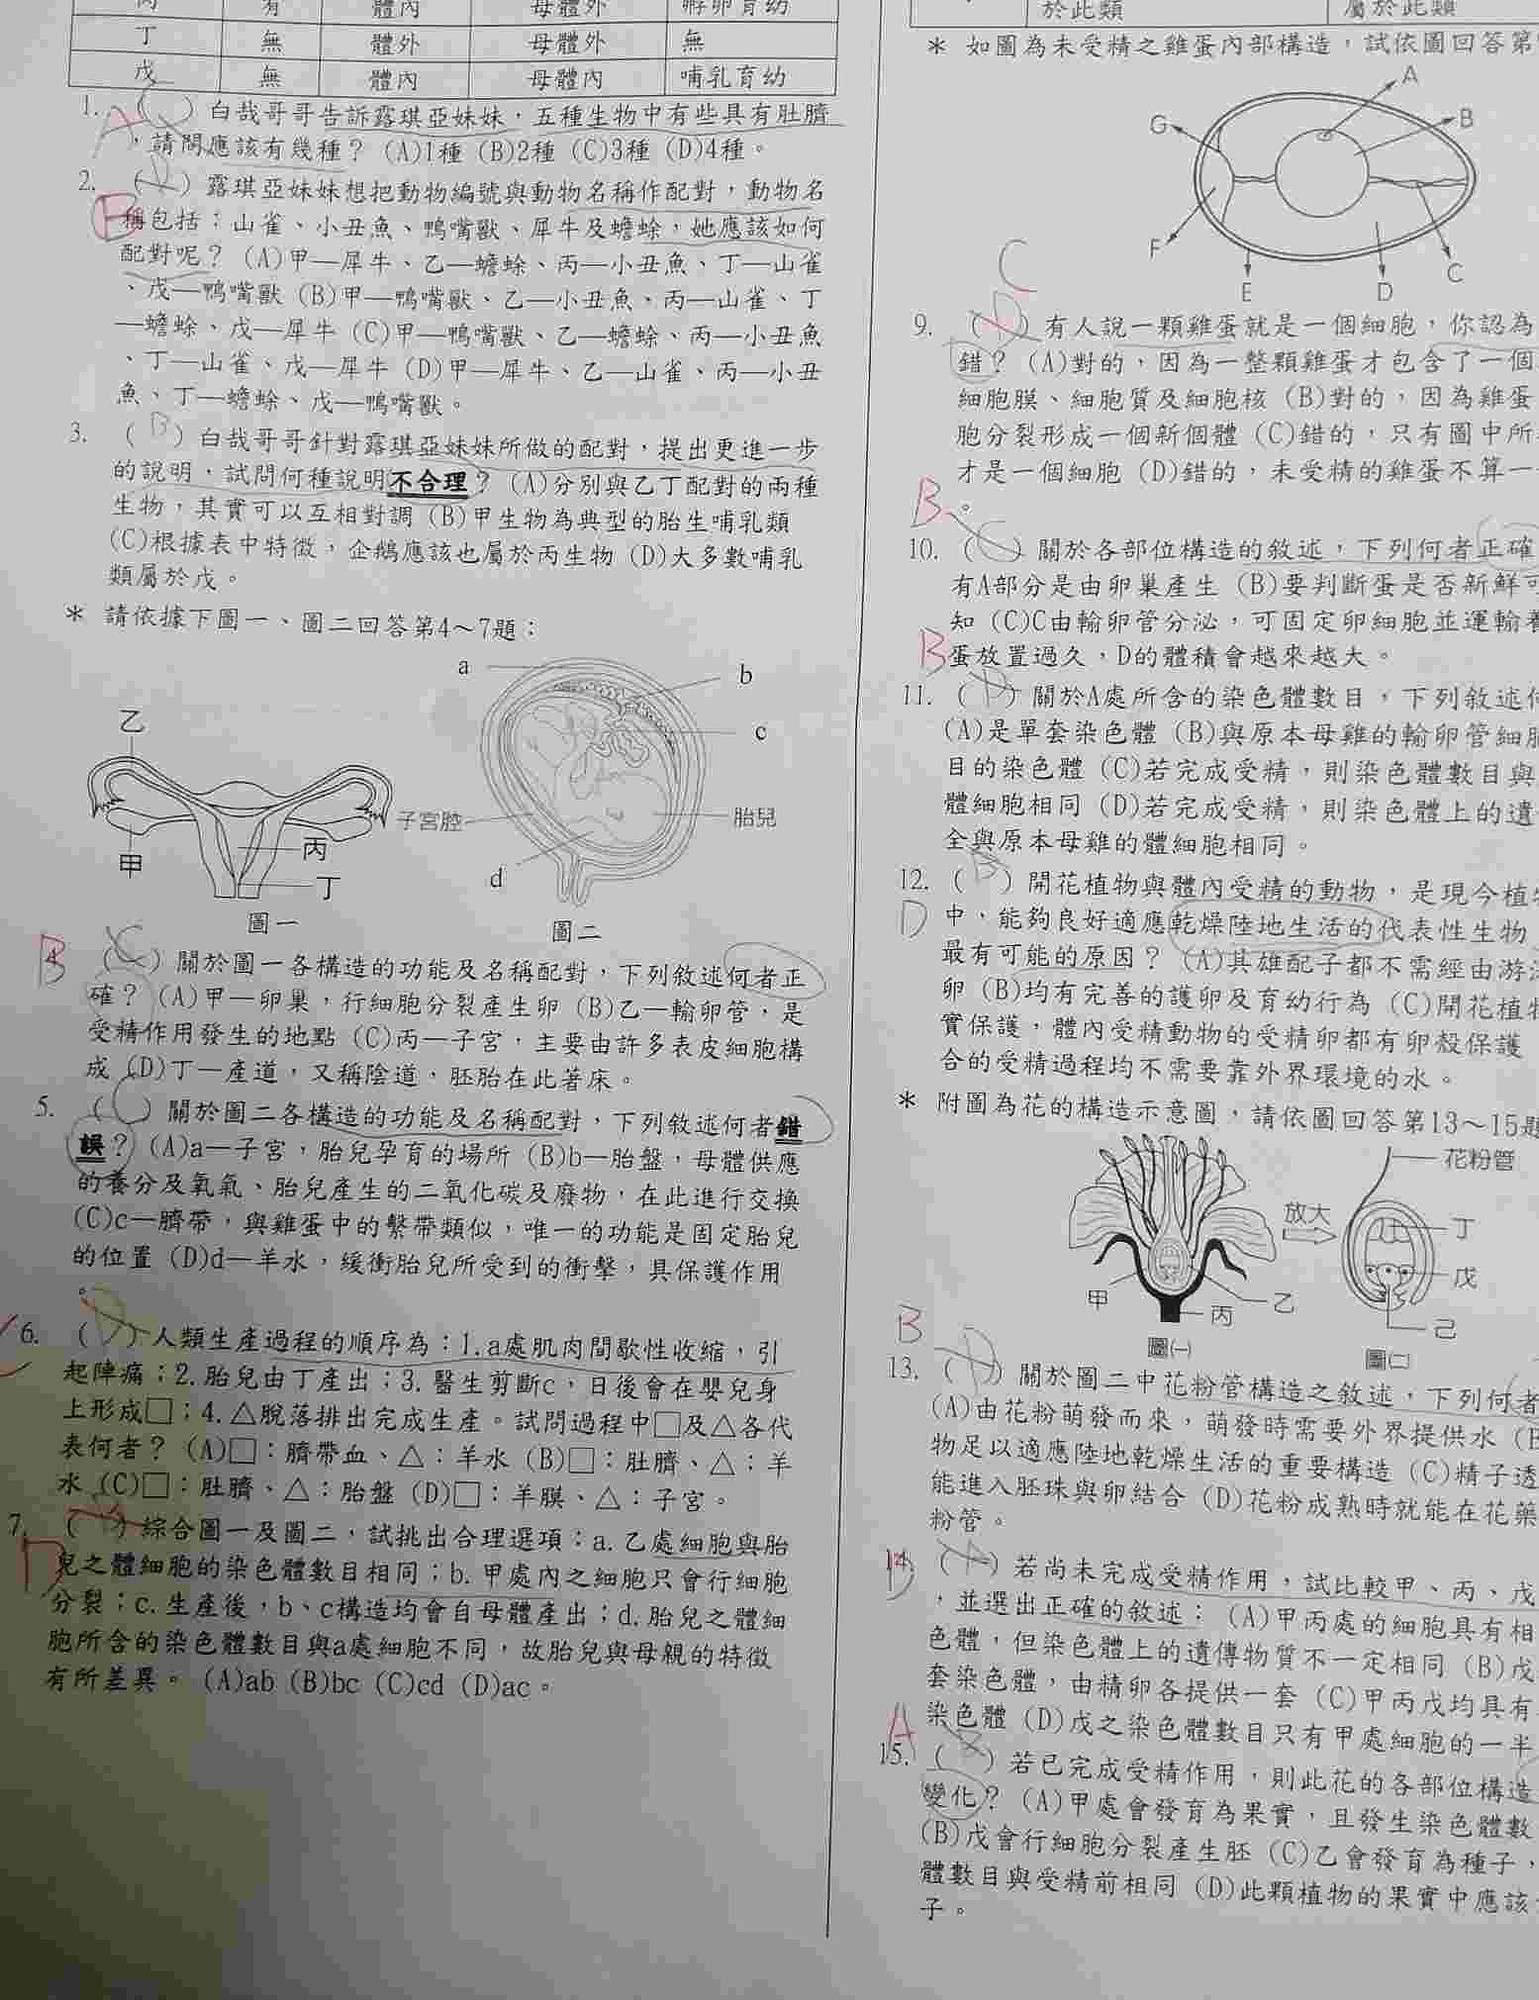 丙 有 體內 母體外 孵卵育幼
丁 無 體外 母體外 無
戊 無 體內 母體內 哺乳育幼
1. ( ) 白哉哥哥告訴露琪亞妹妹，五種生物中有些具有肚臍
A
，請問應該有幾種？ (A)1種 (B)2種 (C)3種 (D)4種。
2. ( ) 露琪亞妹妹想把動物編號與動物名稱作配對，動物名
B
稱包括：山雀、小丑魚、鴨嘴獸、犀牛及蟾蜍，她應該如何
配對呢？ (A)甲—犀牛、乙—蟾蜍、丙—小丑魚、丁—山雀
、戊—鴨嘴獸 (B)甲—鴨嘴獸、乙—小丑魚、丙—山雀、丁
—蟾蜍、戊—犀牛 (C)甲—鴨嘴獸、乙—蟾蜍、丙—小丑魚
、丁—山雀、戊—犀牛 (D)甲—犀牛、乙—山雀、丙—小丑
魚、丁—蟾蜍、戊—鴨嘴獸。
3. ( B ) 白哉哥哥針對露琪亞妹妹所做的配對，提出更進一步
的說明，試問何種說明不合理？ (A)分別與乙丁配對的兩種
生物，其實可以互相對調 (B)甲生物為典型的胎生哺乳類
(C)根據表中特徵，企鵝應該也屬於丙生物 (D)大多數哺乳
類屬於戊。
* 請依據下圖一、圖二回答第4～7題：
a
b
乙
c
子宮腔
胎兒
丙
甲
丁
d
圖一
圖二
B
( ) 關於圖一各構造的功能及名稱配對，下列敘述何者正
確？ (A)甲—卵巢，行細胞分裂產生卵 (B)乙—輸卵管，是
受精作用發生的地點 (C)丙—子宮，主要由許多表皮細胞構
成 (D)丁—產道，又稱陰道，胚胎在此著床。
5. ( C ) 關於圖二各構造的功能及名稱配對，下列敘述何者錯
誤？ (A)a—子宮，胎兒孕育的場所 (B)b—胎盤，母體供應
的養分及氧氣、胎兒產生的二氧化碳及廢物，在此進行交換
(C)c—臍帶，與雞蛋中的繫帶類似，唯一的功能是固定胎兒
的位置 (D)d—羊水，緩衝胎兒所受到的衝擊，具保護作用
。
6. ( ) 人類生產過程的順序為：1.a處肌肉間歇性收縮，引
起陣痛；2.胎兒由丁產出；3.醫生剪斷c，日後會在嬰兒身
上形成□；4.△脫落排出完成生產。試問過程中□及△各代
表何者？ (A)□：臍帶血、△：羊水 (B)□：肚臍、△：羊
水 (C)□：肚臍、△：胎盤 (D)□：羊膜、△：子宮。
7. ( ) 綜合圖一及圖二，試挑出合理選項：a.乙處細胞與胎
D
兒之體細胞的染色體數目相同；b.甲處內之細胞只會行細胞
分裂；c.生產後，b、c構造均會自母體產出；d.胎兒之體細
胞所含的染色體數目與a處細胞不同，故胎兒與母親的特徵
有所差異。 (A)ab (B)bc (C)cd (D)ac。
於此類 屬於此類
* 如圖為未受精之雞蛋內部構造，試依圖回答第
A
B
G
F
E
D
C
C
9. ( ) 有人說一顆雞蛋就是一個細胞，你認為
錯？ (A)對的，因為一整顆雞蛋才包含了一個
細胞膜、細胞質及細胞核 (B)對的，因為雞蛋
胞分裂形成一個新個體 (C)錯的，只有圖中所
才是一個細胞 (D)錯的，未受精的雞蛋不算一
。
B
10. ( ) 關於各部位構造的敘述，下列何者正確
有A部分是由卵巢產生 (B)要判斷蛋是否新鮮可
知 (C)C由輸卵管分泌，可固定卵細胞並運輸養
蛋放置過久，D的體積會越來越大。
B
11. ( ) 關於A處所含的染色體數目，下列敘述何
(A)是單套染色體 (B)與原本母雞的輸卵管細胞
目的染色體 (C)若完成受精，則染色體數目與
體細胞相同 (D)若完成受精，則染色體上的遺
全與原本母雞的體細胞相同。
12. ( ) 開花植物與體內受精的動物，是現今植物
D
中，能夠良好適應乾燥陸地生活的代表性生物
最有可能的原因？ (A)其雄配子都不需經由游泳
卵 (B)均有完善的護卵及育幼行為 (C)開花植物
實保護，體內受精動物的受精卵都有卵殼保護
合的受精過程均不需要靠外界環境的水。
* 附圖為花的構造示意圖，請依圖回答第13～15題
花粉管
放大
丁
戊
甲
乙
丙
己
圖㈠
圖㈡
B
13. ( ) 關於圖二中花粉管構造之敘述，下列何者
(A)由花粉萌發而來，萌發時需要外界提供水 (B
物足以適應陸地乾燥生活的重要構造 (C)精子透
能進入胚珠與卵結合 (D)花粉成熟時就能在花藥
粉管。
D
14. ( ) 若尚未完成受精作用，試比較甲、丙、戊
，並選出正確的敘述： (A)甲丙處的細胞具有相
色體，但染色體上的遺傳物質不一定相同 (B)戊
套染色體，由精卵各提供一套 (C)甲丙戊均具有
染色體 (D)戊之染色體數目只有甲處細胞的一半
A
15. ( ) 若已完成受精作用，則此花的各部位構造
變化？ (A)甲處會發育為果實，且發生染色體數
(B)戊會行細胞分裂產生胚 (C)乙會發育為種子，
體數目與受精前相同 (D)此顆植物的果實中應該
子。